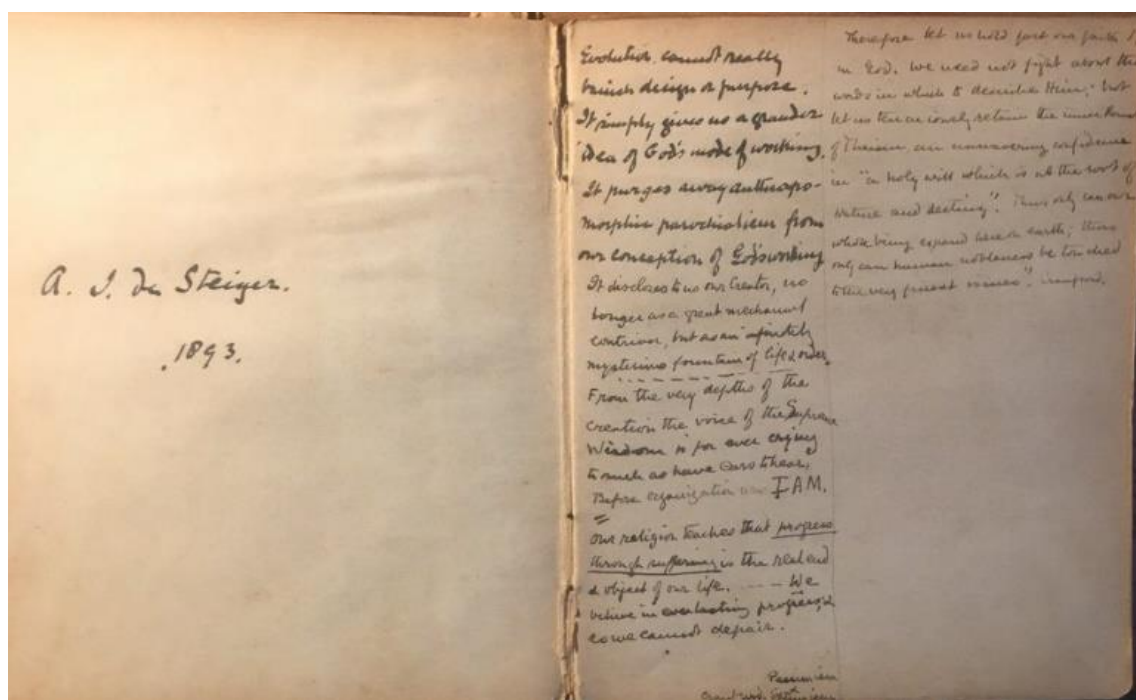 A. J. de Steiger.
1893.
Evolution cannot really
banish design or purpose.
It simply gives us a grander
idea of God's mode of working.
It purges away anthropo-
morphic parochialism from
our conception of God's working
It discloses to us our Creator, no
longer as a great mechanical
contriver, but as an infinitely
mysterious fountain of life & order.
From the very depths of the
creation the voice of the Supreme
Wisdom is for ever crying
to such as have ears to hear,
Before organization was I AM.
=
our religion teaches that progress
through suffering is the real end
& object of our life. ---- We
believe in everlasting progress, &
so we cannot depair.
Pessimism
Therefore let us hold fast our faith
in God. We need not fight about the
words in which to describe Him; but
let us tenaciously retain the inner
of Theism, an unwavering confidence
in "a holy will which is at the root of
nature and destiny". Thus only can our
whole being expand here on earth; thus
only can human nobleness be touched
to the very finest issues".